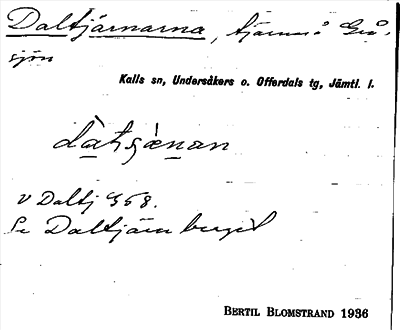 Daltjärnarna, tjärnar i Grå-
sjön
Kalls sn, Undersåkers o. Offerdals tg, Jämtl. l.
v Daltj 958.
Se Daltjärnberget
BERTIL BLOMSTRAND 1936